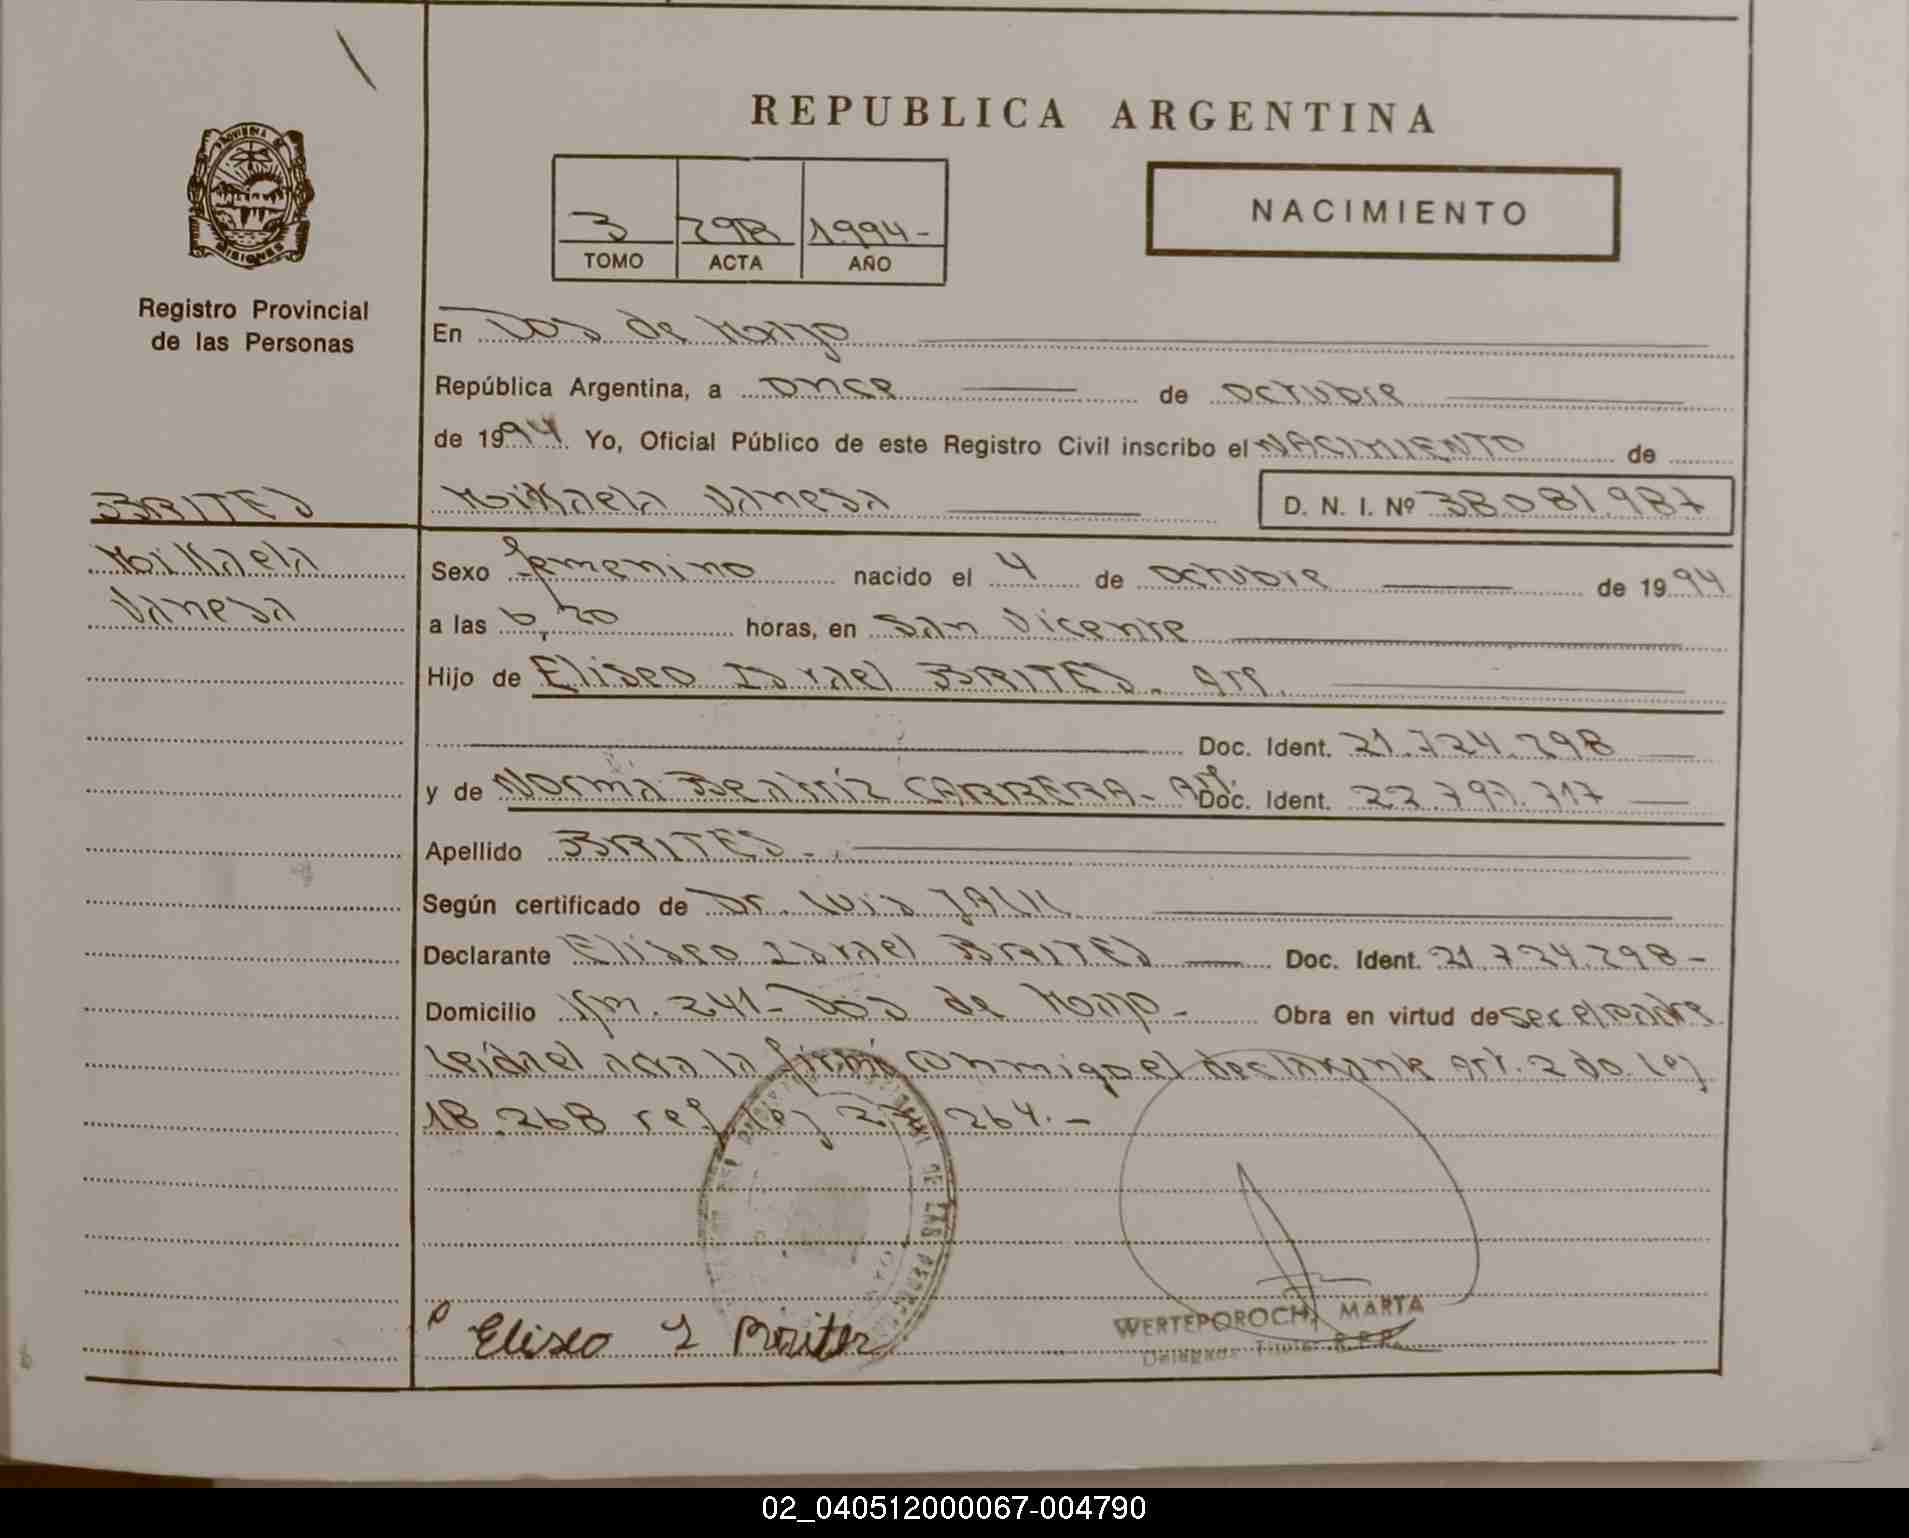 REPUBLICA ARGENTINA
PROVINCIA
MISIONES
Registro Provincial
de las Personas
3 298 1994-
TOMO ACTA AÑO
NACIMIENTO
En Dos de Mayo
República Argentina, a once de octubre
de 1994 Yo, Oficial Público de este Registro Civil inscribo el NACIMIENTO de
BRITES
Mikaela Vanesa D. N. I. Nº 38081.987
Mikaela
Vanesa
Sexo femenino nacido el 4 de octubre de 1994
a las 6,20 horas, en San Vicente
Hijo de Eliseo Israel BRITES. Arg.
Doc. Ident. 21.724.298
y de Norma Beatriz CARRERA- Arg. Doc. Ident. 22.797.717
Apellido BRITES-.
Según certificado de Dr. Luis JALIL
Declarante Eliseo Israel BRITES Doc. Ident. 21.724.298-
Domicilio Km. 241- Dos de Mayo- Obra en virtud de ser el padre
leída el acta la firmá conmigo el declarante Art. 2do. Ley
18.268 ref. ley 264.-
DE LAS
Eliseo I Brites
WERTEPOROCH, MARTA
Titular R.P.P.
02_040512000067-004790